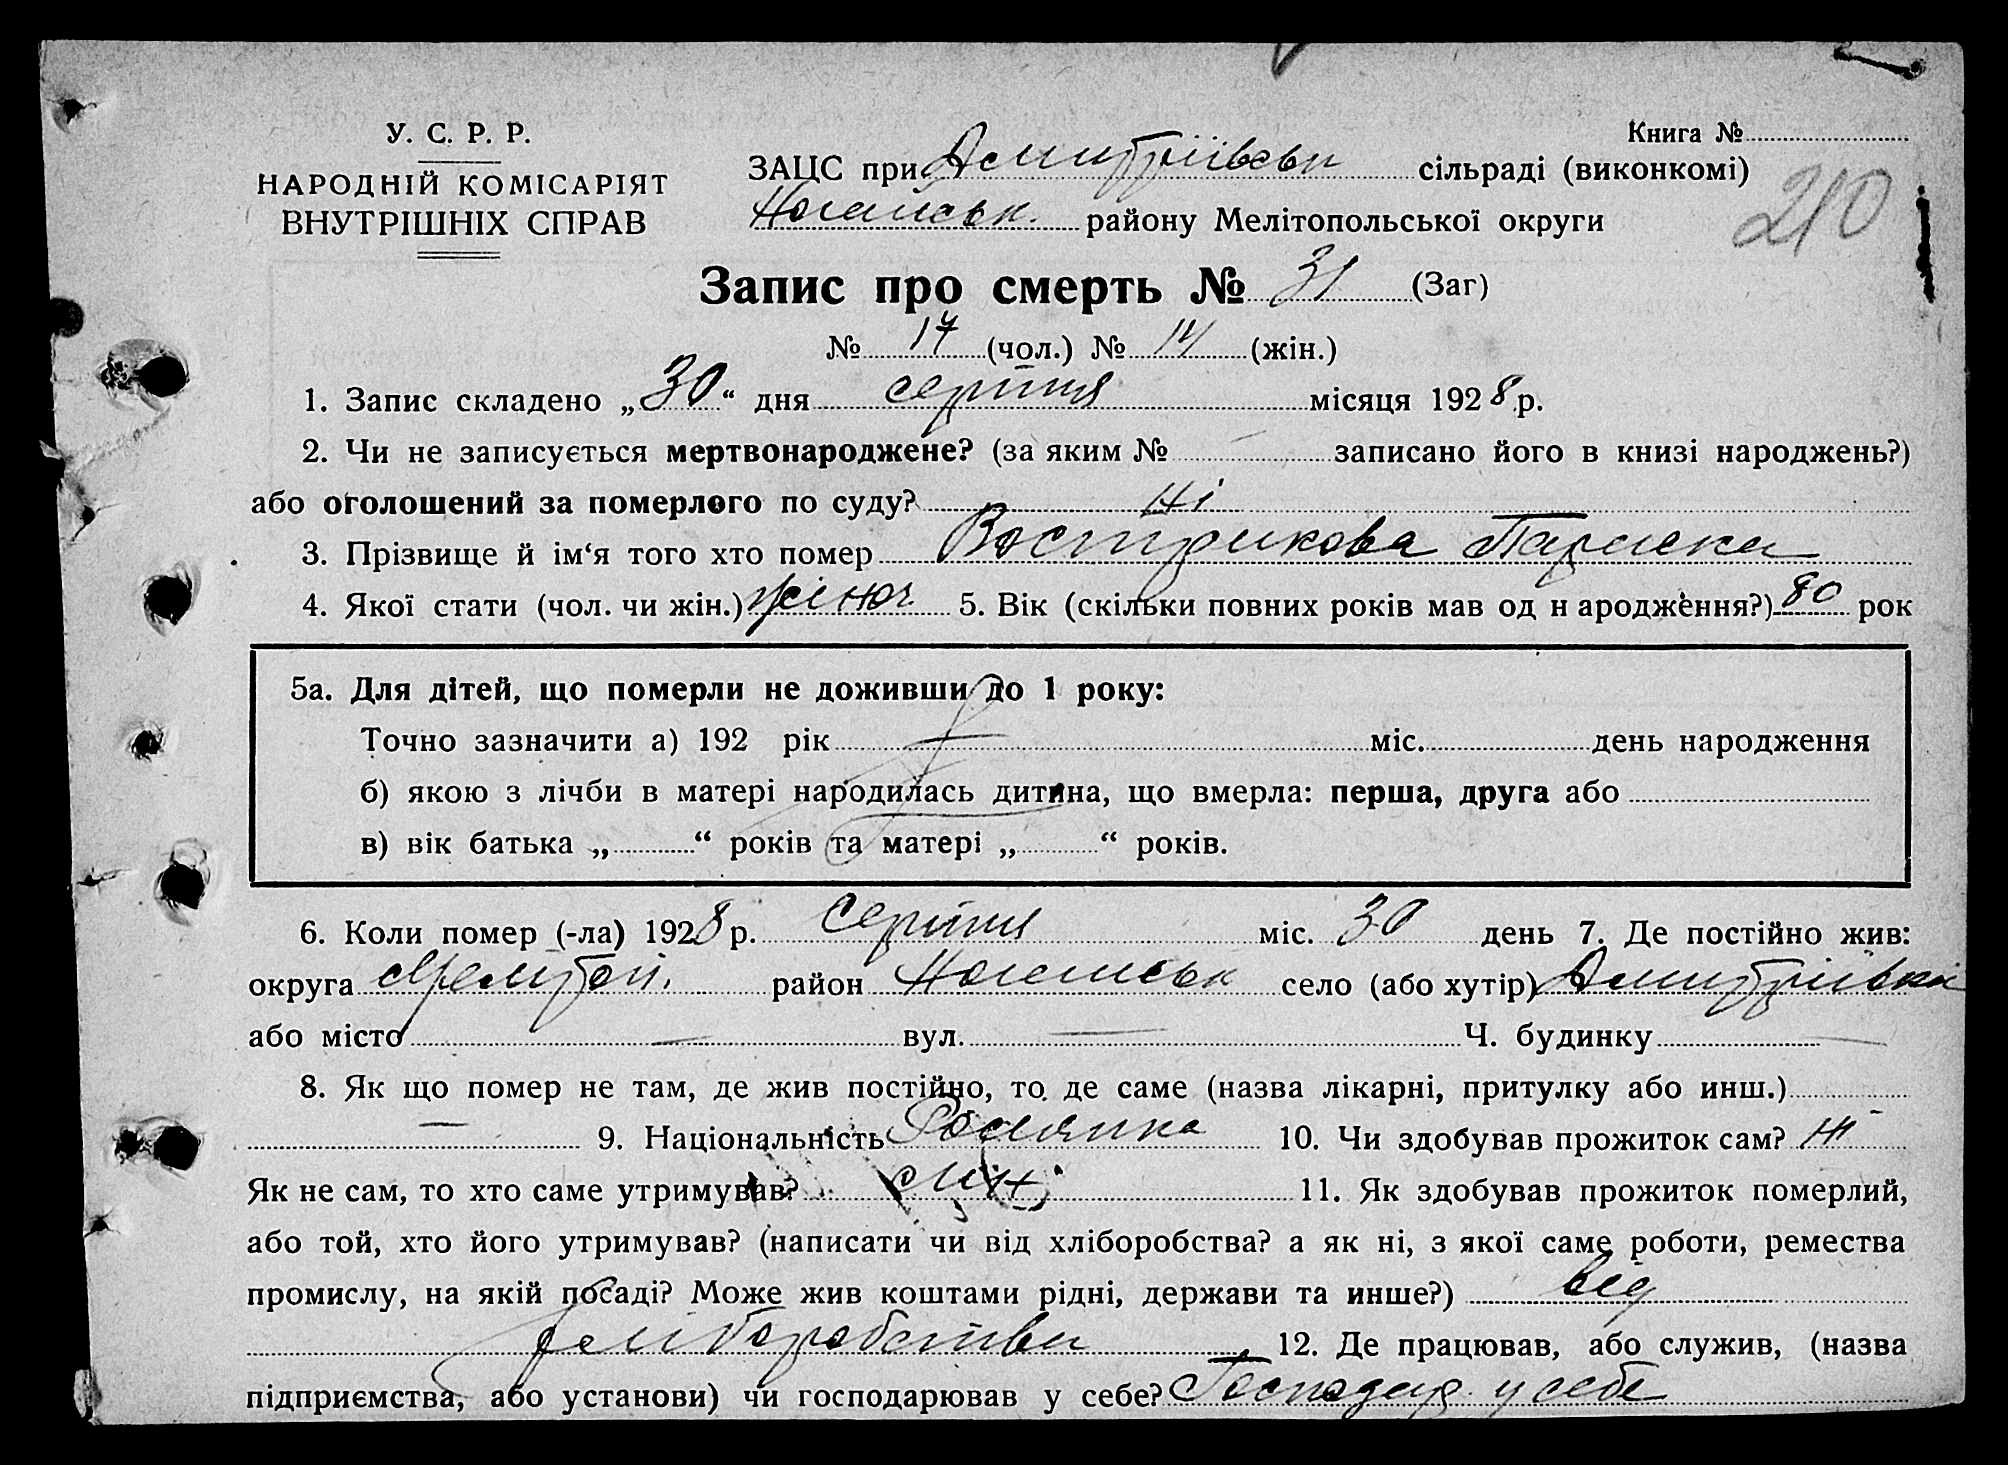 У. С. Р. Р.
НАРОДНІЙ КОМІСАРІЯТ
ВНУТРІШНІХ СПРАВ
Книга №
210
ЗАЦС при Дмитріївськи сільраді (виконкомі)
Ногайськ. району Мелітопольської округи
Запис про смерть № 31 (Заг)
№ 17 (чол.) № 14 (жін.)
1. Запис складено „30“ дня серпня місяця 1928 р.
2. Чи не записується мертвонароджене? (за яким № — записано його в книзі народжень?)
або оголошений за померлого по суду? Ні
3. Прізвище й ім‘я того хто помер Вострикова Параска
4. Якої стати (чол. чи жін.) жіноч 5. Вік (скільки повних років мав од н ародження?) 80 рок
5а. Для дітей, що померли не доживши до 1 року:
Точно зазначити а) 192 рік міс. день народження
б) якою з лічби в матері народилась дитина, що вмерла: перша, друга або
в) вік батька „ “ років та матері „ “ років.
6. Коли помер (-ла) 1928 р. Серпня міс. 30 день 7. Де постійно жив:
округа Меліт район Ногайськ село (або хутір) Дмитрівка
або місто — вул. — Ч. будинку —
8. Як що помер не там, де жив постійно, то де саме (назва лікарні, притулку або инш.)
— 9. Національність Росіянка 10. Чи здобував прожиток сам? Ні
Як не сам, то хто саме утримував? син 11. Як здобував прожиток померлий,
або той, хто його утримував? (написати чи від хліборобства? а як ні, з якої саме роботи, ремества
промислу, на якій посаді? Може жив коштами рідні, держави та инше?) від
хліборобства 12. Де працював, або служив, (назва
підприємства, або установи) чи господарював у себе? Господар у себе